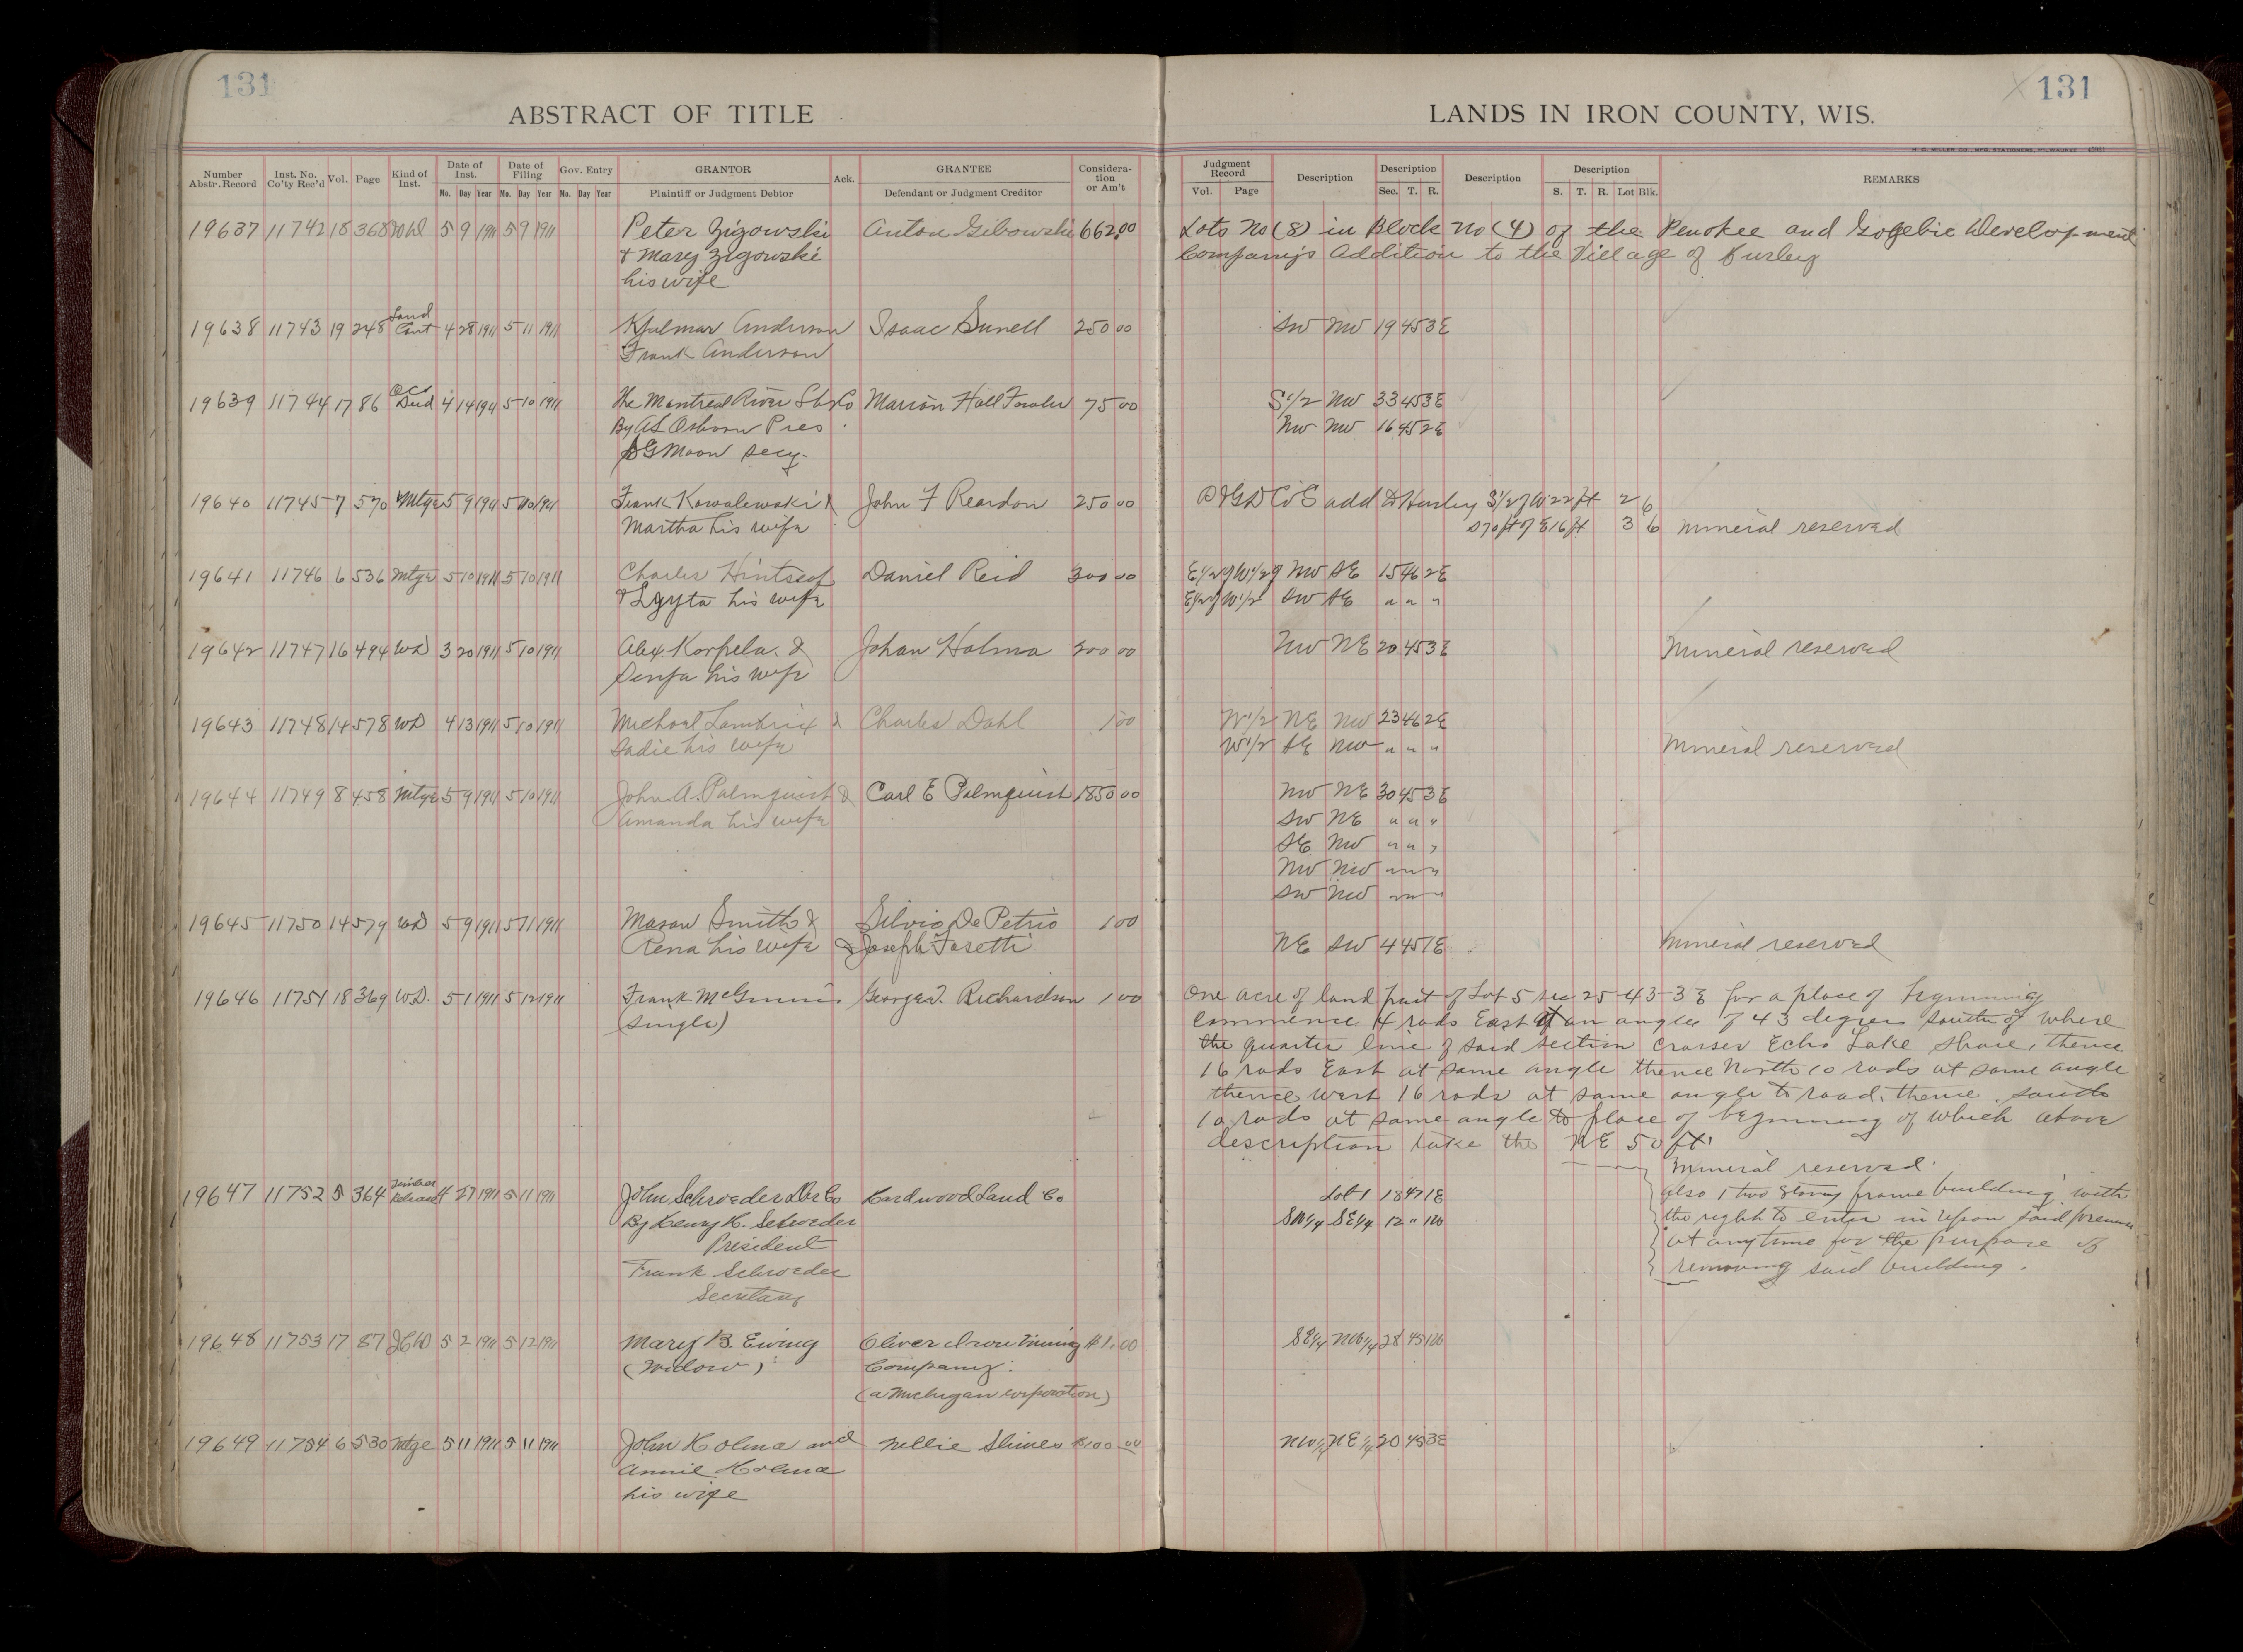 131
131
ABSTRACT OF TITLE
LANDS IN IRON COUNTY, WIS.
H. C. MILLER CO., MFG. STATIONERS, MILWAUKEE
Number Abstr. Record Inst. No. Co'ty Rec'd Vol. Page Kind of Inst. Date of Inst. Date of Filing Gov. Entry GRANTOR Ack. GRANTEE Considera-tion or Am't Judgment Record Description Description Description Description REMARKS
No. Day Year No. Day Year No. Day Year Plaintiff or Judgment Debtor Defendant or Judgment Creditor Vol. Page Sec. T. R. S. T. R. Lot Blk.
19637 11742 18 368 WD 5 9 1911 5 9 1911 Peter Zigowski Anton Gibowski 662.00 Lots No (8) in Block No (4) of the Penokee and Gogebic Development
& Mary Zigowski Company's Addition to the Village of Hurley
his wife
19638 11743 19 248 Land Cont 4 28 1911 5 11 1911 Hjalmar Anderson Isaac Sunell 250 00 SW NW 19 45 3E
Frank Anderson
19639 11744 17 86 Deed 4 14 1911 5 10 1911 The Montreal River Co Marion Hall Fowler 75 00 S 1/2 NW 33 45 3E
By AL Osborn Pres NW NW 16 45 2E
SG Moon Secy.
19640 11745 7 570 Mtge 5 9 1911 5 10 1911 Frank Kowalewski & John F Reardon 250 00 P & G D Co's add to Hurley S 1/2 of W 22 ft 2 6
Martha his wife S 70 ft of E 16 ft 3 6 Mineral reserved
19641 11746 6 536 Mtge 5 10 1911 5 10 1911 Charles Daniel Reid 300 00 E 1/2 of W 1/2 of NW SE 15 46 2E
his wife E 1/2 of W 1/2 SW SE " " "
19642 11747 16 494 WD 3 20 1911 5 10 1911 Alex Korpela & Johan Holma 200 00 NW NE 20 45 3E Mineral reserved
his wife
19643 11748 14 578 WD 4 13 1911 5 10 1911 Michael Lambrix & Charles Dahl 1 00 W 1/2 NE NW 23 46 2E
Sadie his wife W 1/2 SE NW " " " Mineral reserved
19644 11749 8 458 Mtge 5 9 1911 5 10 1911 John A. Palmquist & Carl E Palmquist 1850 00 NW NE 30 45 3E
Amanda his wife SW NE " " "
SE NW " " "
NW NW " " "
SW NW " " "
19645 11750 14 579 WD 5 9 1911 5 11 1911 Mason Smith & Silvio De Petrio 1 00
Rena his wife & Joseph Fasetti NE SW 4 45 1E Mineral reserved
19646 11751 18 369 WD. 5 1 1911 5 12 1911 Frank McGinnis George Richardson 1 00 One acre of land part of Lot 5 sec 25-43-3E for a place of beginning
(single) commence 4 rods East at an angle of 43 degrees south of where
the quarter line of said section crosses Echo Lake shore, thence
16 rods East at same angle thence North 10 rods at same angle
thence west 16 rods at same angle to road, thence south
10 rods at same angle to place of beginning of which above
description take the NE 50 ft
Mineral reserved.
19647 11752 5 364 Timber Release 4 27 1911 5 11 1911 John Schroeder Lbr Co Hardwood Land Co Lot 1 18 47 1E also 1 two story frame building with
By Henry H. Schroeder SW1/4 SE1/4 12 " 1W the right to enter in upon said premises
President at anytime for the purpose of
Frank Schroeder removing said building.
Secretary
19648 11753 17 87 5 2 1911 5 12 1911 Mary B. Ewing Oliver Iron Mining $1.00 SE1/4 NW1/4 28 45 1W
(Widow) Company.
(a Michigan corporation)
19649 11754 6 530 Mtge 5 11 1911 5 11 1911 John Holma and Nellie Shines $100 00 NW1/4 NE1/4 20 45 3E
Annie Holma
his wife